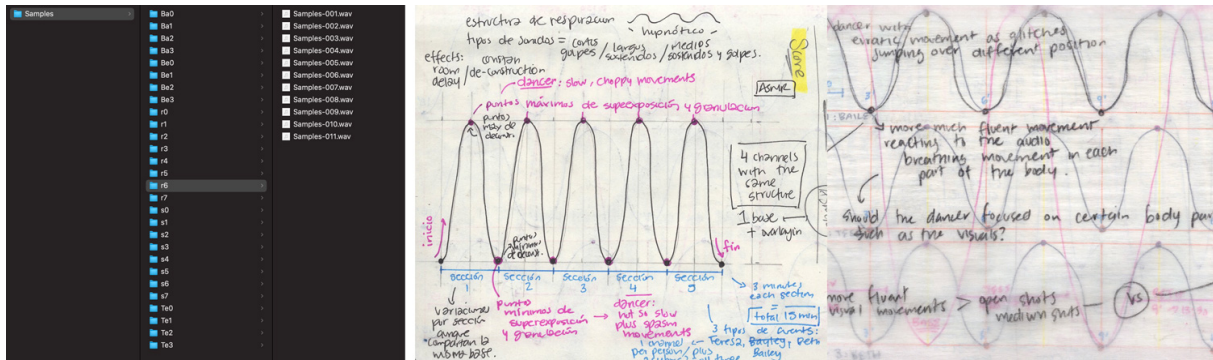 Samples
Ba0
Ba1
Ba2
Ba3
Be0
Be1
Be2
Be3
r0
r1
r2
r3
r4
r5
r6
r7
s0
s1
s2
s3
s4
s5
s6
s7
Te0
Te1
Te2
Te3
Samples-001.wav
Samples-002.wav
Samples-003.wav
Samples-004.wav
Samples-005.wav
Samples-006.wav
Samples-007.wav
Samples-008.wav
Samples-009.wav
Samples-010.wav
Samples-011.wav
estructura de respiración
hipnótico
tipos de sonidos = cortos golpes / largos sostenidos / medios sostenidos y golpes.
effects: constan
room / de-construction
delay
Score
ASMR
dancer: slow, choppy movements
puntos máximos de superexposición y granulación
puntos
max de
4 channels
with the
same
structure
1 base
+ overlaying
inicio
fin
sección 1
sección 2
sección 3
sección 4
sección 5
variaciones
por sección
aunque
compartan la
misma base.
punto
mínimos de
superexposición
y granulación
dancer:
not so slow
plus spasm
movements
3 minutes
each section
=
total 15 min
3 tipos de
Teresa, Bagley, Beth
Bailey
dancer with
erratic movement as glitches
jumping over different position
3'
6'
9'
1: BAILE
more much fluent movement
reacting to the audio
breathing movement in each
part of the body.
should the dancer focused on certain body par
such as the visuals?
move fluent
visual movements > open shots
medium shots
VS
3: BETH